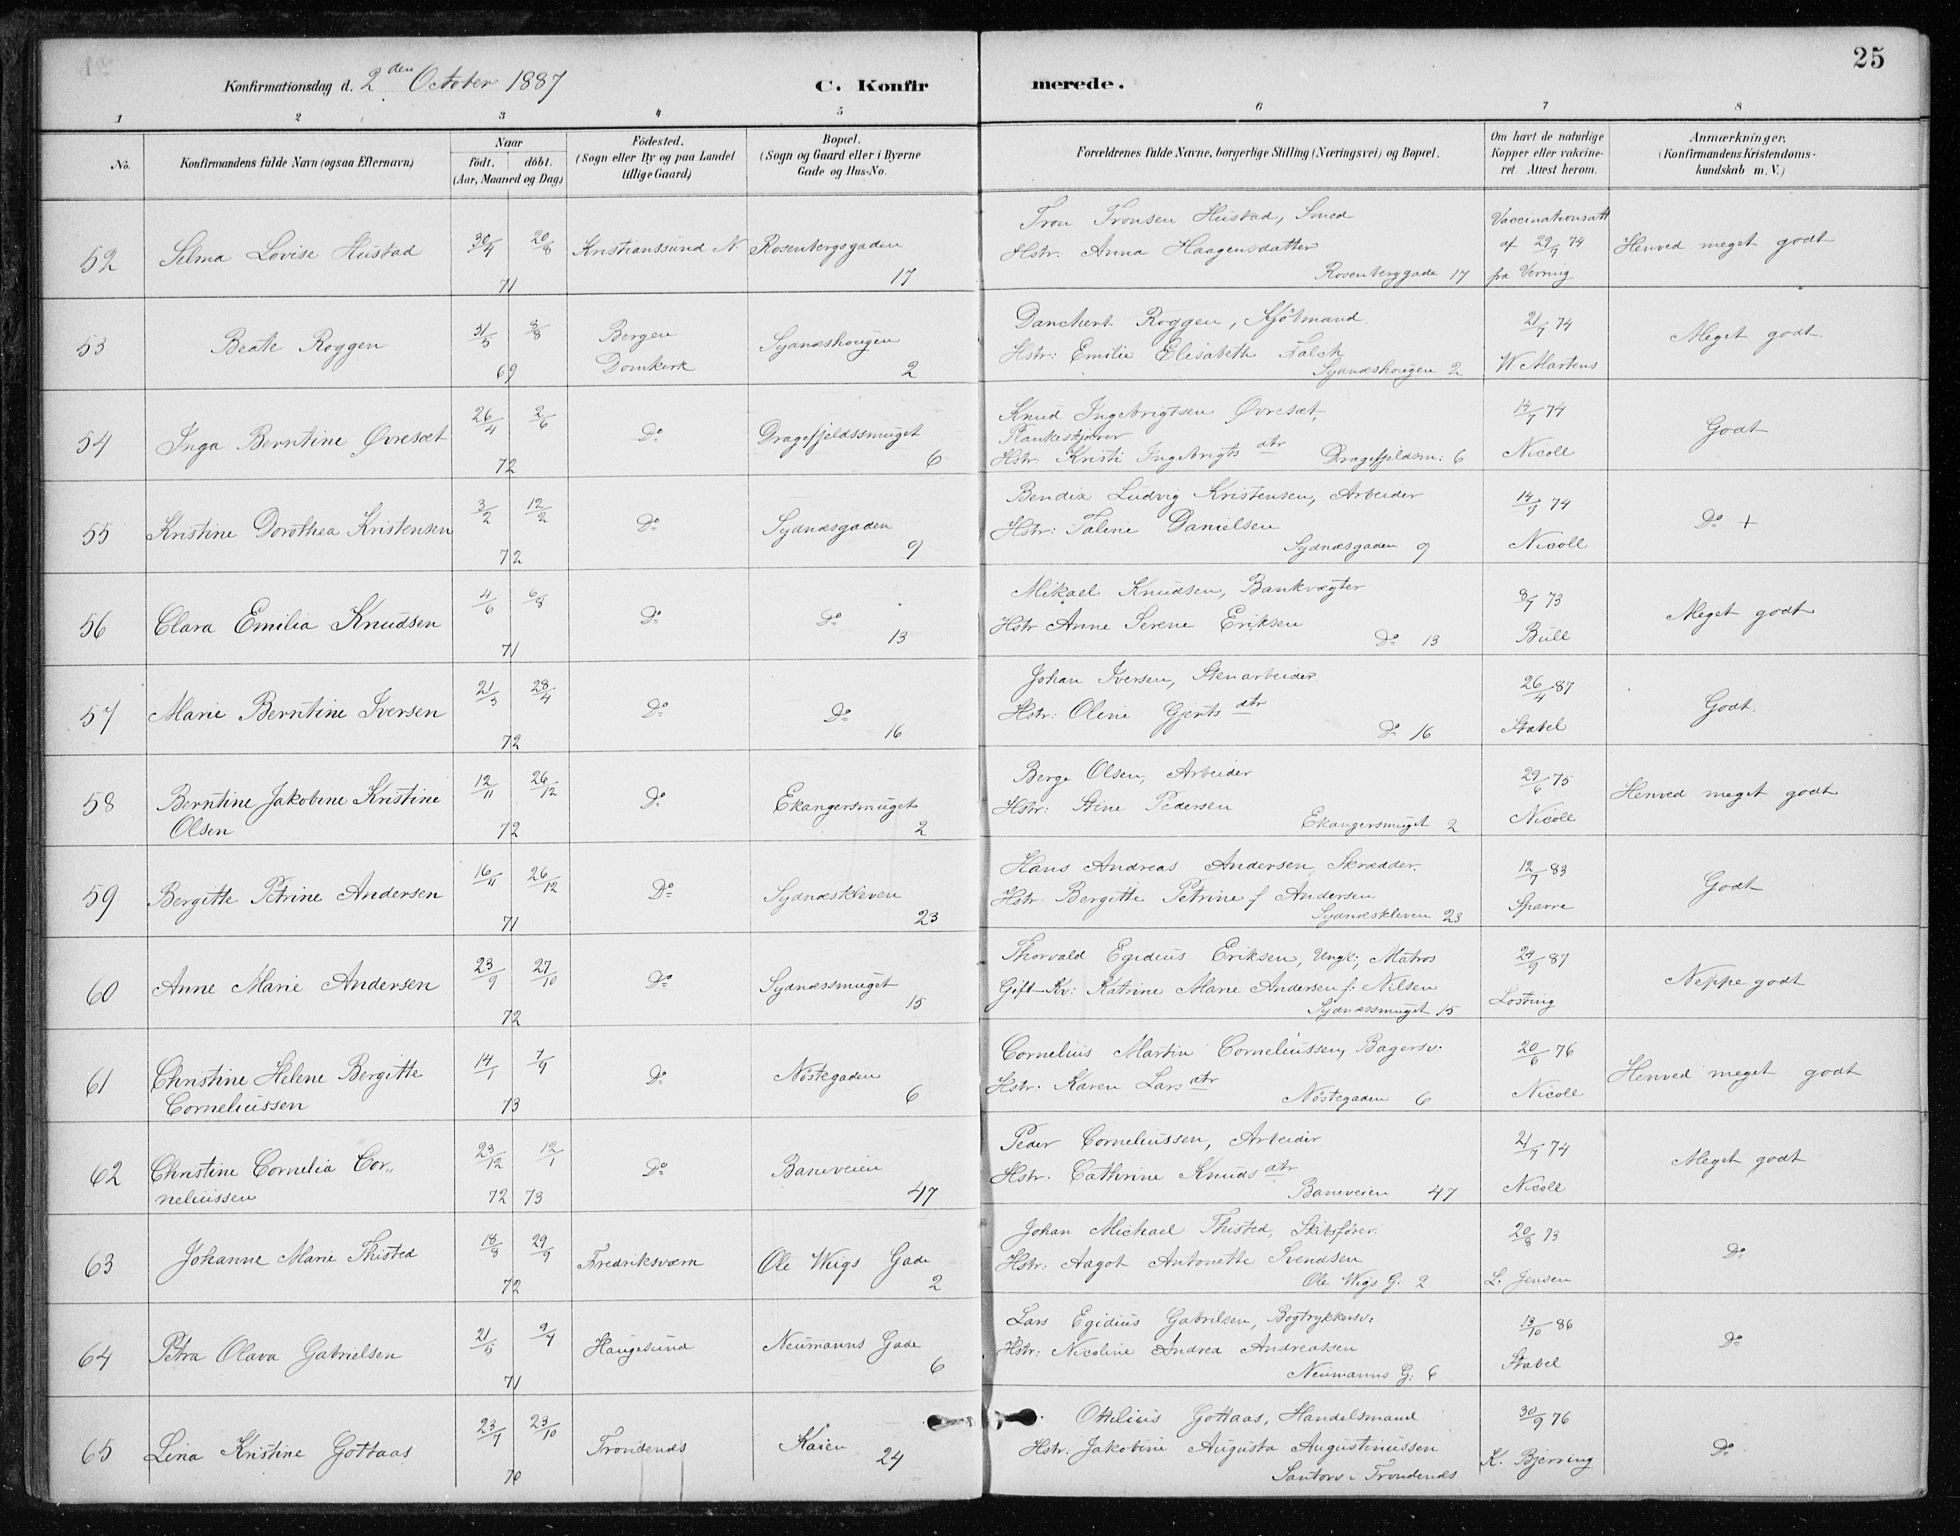 25
Konfirmationsdag d. 2den October 1887
C. Konfirmerede.
1 2 3 4 5 6 7 8
No.
Konfirmandens fulde Navn (ogsaa Efternavn)
Naar
født. døbt.
(Aar, Maaned og Dag)
Födested.
(Sogn eller By og paa Landet
tillige Gaard)
Bopæl.
(Sogn og Gaard eller i Byerne
Gade og Hus-No.
Forældrenes fulde Navne, borgerlige Stilling (Næringsvei) og Bopæl.
Om havt de naturlige
Kopper eller vakcine-
ret. Attest herom.
Anmærkninger,
(Konfirmandens Kristendoms-
kundskab m. V.)
52 Selma Lovise Hustad 30/4 20/8 71 Kristianssund N. Rosenbergsgaden 17
Tron Tronsen Hustad, Smed
Hstr. Anna Haagensdatter
Rosenberggade 17
Vaccinationsatt
af 29/9 74
fra Verring
Henved meget godt
53 Beate Roggen 31/5 8/8 69 Bergen Domkirk Sydnæshougen 2
Danchert Roggen, Kjøbmand.
Hstr: Emilie Elisabeth Falch
Sydnæshougen 2
21/7 74
W. Martens
Meget godt.
54 Inga Berntine Øvresæt 26/4 2/6 72 Do Dragefjeldssmuget 6
Knud Ingebrigtsen Øvresæt,
Plankeskjærer
Hstr: Kristi Ingebrigts dtr Dragefjeldsm: 6
14/7 74
Nicoll
Godt
55 Kristine Dorothea Kristensen 3/2 12/2 72 Do Sydnæsgaden 9
Bendix Ludvig Kristensen, Arbeider
Hstr: Taline Danielsen
Sydnæsgaden 9
14/7 74
Nicoll
Do +
56 Clara Emilia Knudsen 4/6 6/8 71 Do Do 13
Mikael Knudsen, Bankvægter
Hstr Anne Serene Eriksen
Do 13
8/7 73
Bull
Meget godt
57 Marie Berntine Iversen 21/3 28/4 72 Do Do 16
Johan Iversen, Stenarbeider
Hstr: Oline Gjerts dtr
Do 16
26/4 87
Stabel
Godt.
58 Berntine Jakobine Kristine
Olsen 12/11 26/12 72 Do Ekangersmuget 2
Berge Olsen, Arbeider
Hstr: Stine Pedersen
Ekangersmuget 2
29/6 75
Nicoll
Henved meget godt
59 Bergitte Petrine Andersen 16/11 26/12 71 Do Sydnæskleven 23
Hans Andreas Andersen, Skrædder.
Hstr. Bergitte Petrine f Andersen
Sydnæskleven 23
12/7 83
Sparre
Godt
60 Anne Marie Andersen 23/9 27/10 72 Do Sydnæssmuget 15
Thorvald Egidius Eriksen, Ungk:, Matros
Gift Kv: Katrine Marie Andersen f: Nilsen
Sydnæssmuget 15
24/9 87
Losting
Neppe godt
61 Christine Helene Bergitte
Corneliussen 14/1 7/9 73 Do Nöstegaden 6
Cornelius Martin Corneliussen, Bagersv.
Hstr. Karen Lars dtr
Nöstegaden 6
20/6 76
Nicoll
Henved meget godt
62 Christine Cornelia Cor„
neliussen 23/12 12/1 72 73 Do Baneveien 47
Peder Corneliussen, Arbeider
Hstr. Cathrine Knuds dtr
Baneveien 47
21/7 74
Nicoll
Meget godt
63 Johanne Marie Thisted 18/8 29/9 72 Fredriksværn Ole Wigs Gade 2
Johan Michael Thisted, Skibsfører.
Hstr: Aagot Antonette Svendsen
Ole Wigs G. 2
20/8 73
L. Jensen
Do
64 Petra Olava Gabrielsen 21/5 9/7 71 Haugesund Neumanns Gade 6
Lars Egidius Gabrilsen, Bogtrykkersv:
Hstr: Nicoline Andrea Andreassen
Neumanns G. 6
13/10 86
Stabel
Do
65 Lina Kristine Gottaas 23/7 23/10 70 Trondenæs Kaien 24
Ottilius Gottaas, Handelsmand
Hstr: Jakobine Augusta Augustinussen
Santorv i Trondenæs
30/9 76
K. Bjerring
Do